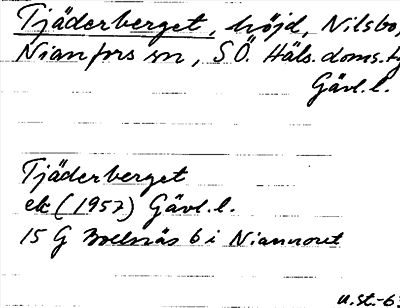 Tjäderberget, höjd, Nilsbo,
Nianfors sn, SÖ. Häls. doms.
Gävl.l.
Tjäderberget
ek (1957) Gävl.l.
15 G Bollnäs 6 i Niannoret
u.st.-63